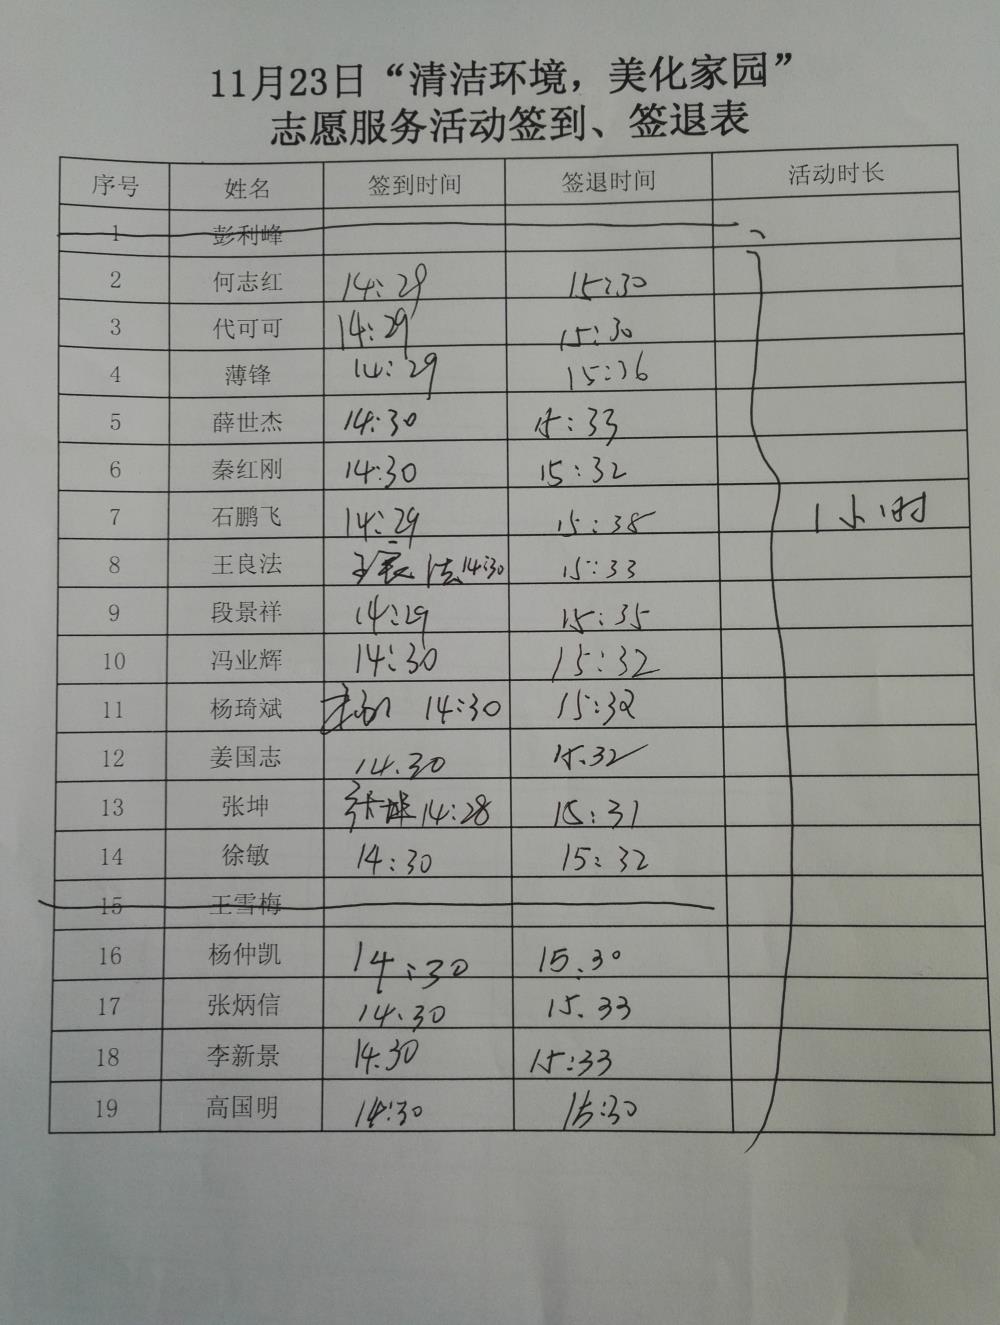 11月23日“清洁环境，美化家园”
志愿服务活动签到、签退表
序号 姓名 签到时间 签退时间 活动时长
1 彭利峰
2 何志红 14:29 15:30
3 代可可 14:29 15:30
4 薄锋 14:29 15:36
5 薛世杰 14:30 15:33
6 秦红刚 14:30 15:32
7 石鹏飞 14:29 15:38 1小时
8 王良法 王良法 14:30 15:33
9 段景祥 14:29 15:35
10 冯业辉 14:30 15:32
11 杨琦斌 14:30 15:32
12 姜国志 14.30 15.32
13 张坤 张坤 14:28 15:31
14 徐敏 14:30 15:32
15 王雪梅
16 杨仲凯 14:30 15.30
17 张炳信 14:30 15.33
18 李新景 14:30 15:33
19 高国明 14:30 15:30